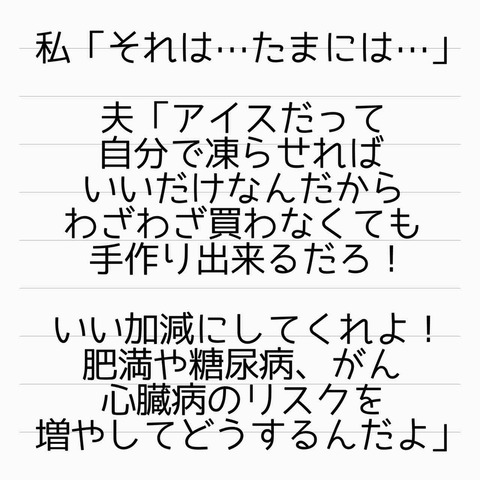 私「それは…たまには…」
夫「アイスだって
自分で凍らせれば
いいだけなんだから
わざわざ買わなくても
手作り出来るだろ！
いい加減にしてくれよ！
肥満や糖尿病、がん
心臓病のリスクを
増やしてどうするんだよ」